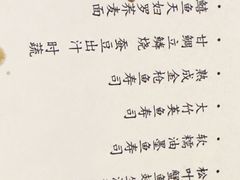 鳝鱼天妇罗荞麦面
甘鲷立鳞烧蚕豆出汁时蔬
熟成金枪鱼寿司
大竹英鱼寿司
软糯油墨鱼寿司
松叶蟹